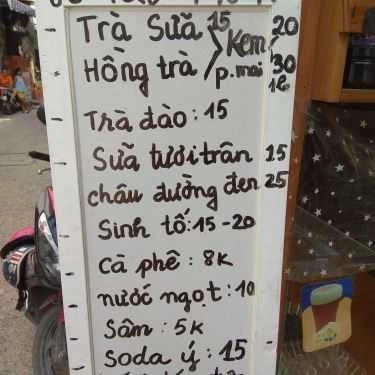 Trà Sữa 15 Kem 20
Hồng trà p.mai 30
Trà đào: 15
Sữa tươi trân 15
châu đường đen 25
Sinh tố: 15-20
Cà phê: 8k
nước ngọt: 10
Sâm: 5k
Soda ý: 15